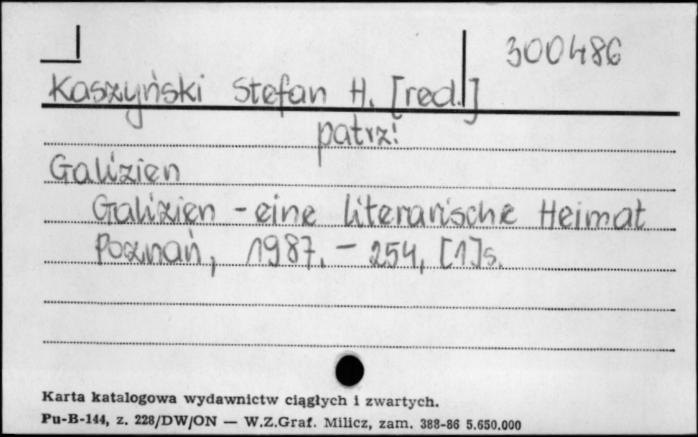 300486
Kaszyński Stefan H. [red.]
patrz:
Galizien
Galizien - eine literarische Heimat
Poznań, 1987. - 254, [1]s.
Karta katalogowa wydawnictw ciągłych i zwartych.
Pu-B-144, z. 228/DW/ON — W.Z.Graf. Milicz, zam. 388-86 5.650.000